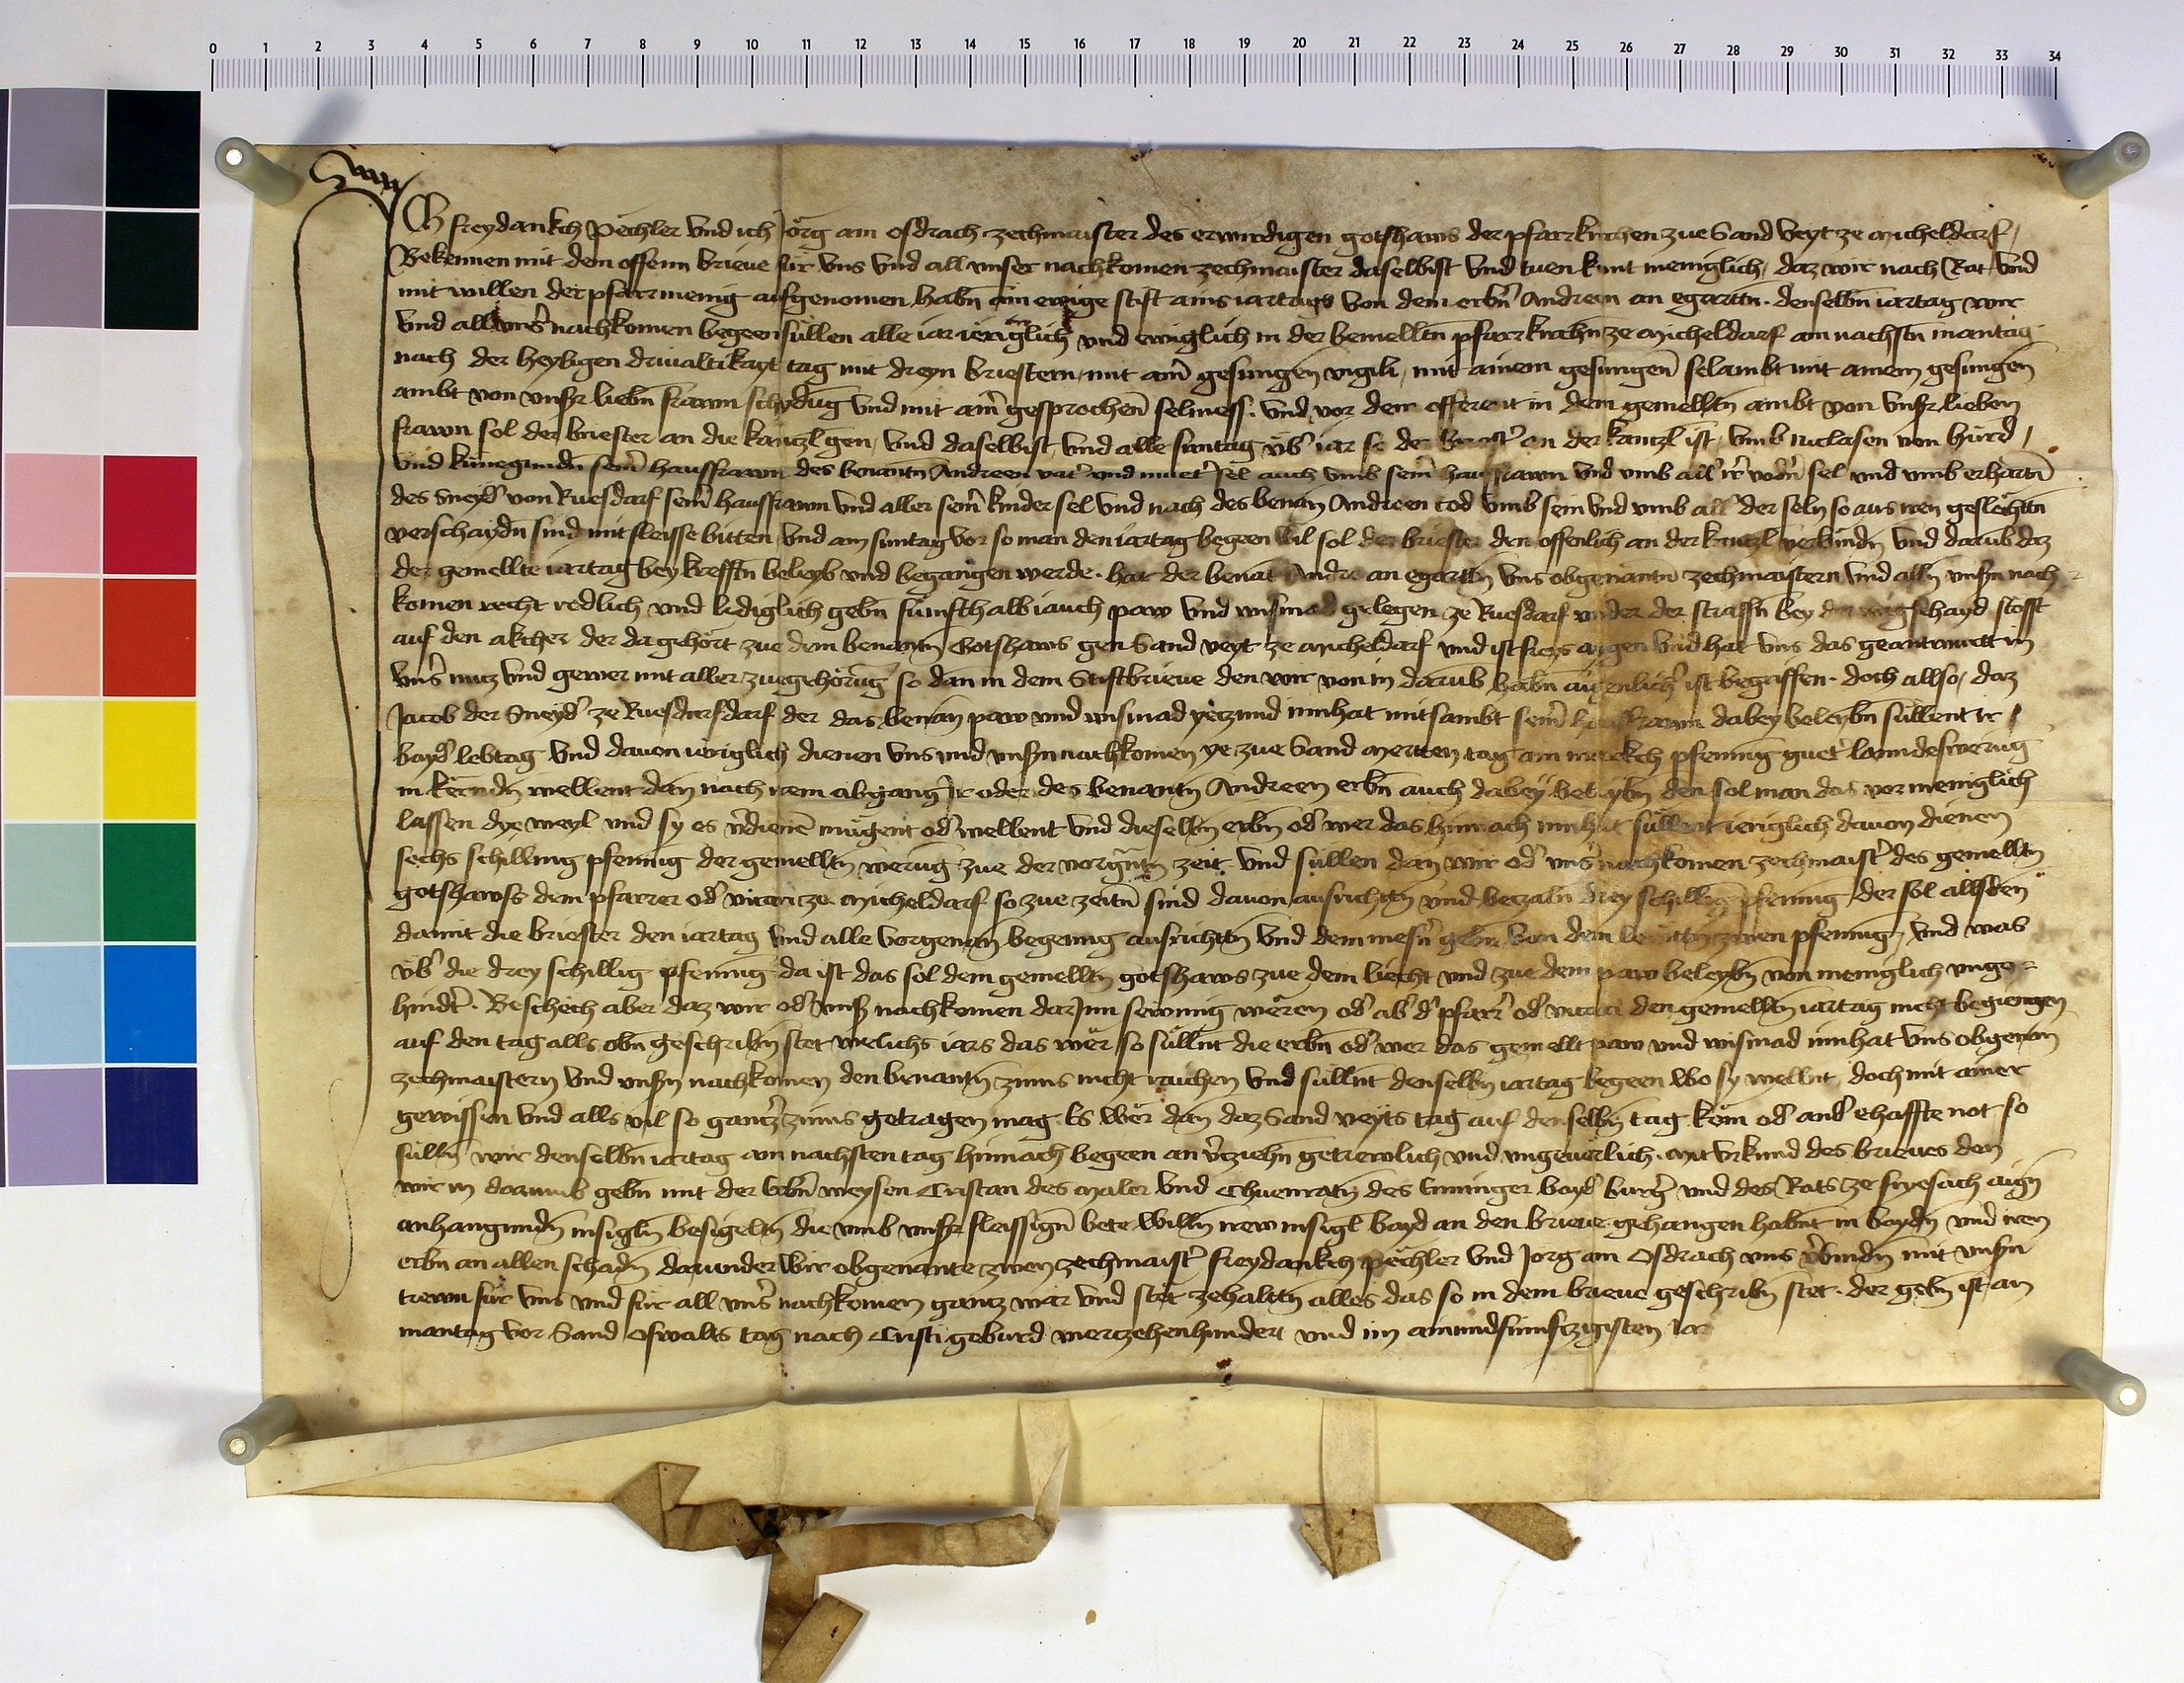 0 1 2 3 4 5 6 7 8 9 10 11 12 13 14 15 16 17 18 19 20 21 22 23 24 25 26 27 28 29 30 31 32 33 34
Ich freydankch Pechler vnd ich Jorg am Osdrach zechmaister des erwirdigen gotshaws der pfarrkirchen zue Sand Veyt ze Micheldorf
Bekennen mit dem offenn brieue für vns vnd all vnser nachkomen zechmaister daselbist vnd tuen kunt meniglich daz wir nach Rat vnd
mit willen der pfarrmenig aufgenomen habn ain ewige stift ains iartags von dem erbn Andreen an egarttn denselbn iartag wir
vnd all vns nachkomen begeen süllen alle iar ieriglich vnd ewiglich in der bemelltn pfarrkirchn ze Micheldarf am nachstn mantag
nach der heyligen driualtikayt tag mit dreyn briestern mit aim gesungen vigili mit ainem gesungen selambt mit ainem gesungen
ambt von vnsr liebn frawn schydug vnd mit aim gesprochen selmess vnd vor dem offerent in dem gemelltn ambt von vnsr lieben
frawn sol der briester an die kanczl gen vnd daselbist vnd alle suntag vb iar so der an der kanczl ist vmb niclasen von hurd
vnd kunegundn seim hausfrawn des benantn Andreen vat vnd muet sel auch vmb seim hausfrawn vnd vmb all ir vodn sel vnd vmb erhartn
des Sneyd von Ruesdarf seim hausfrawn vnd aller seim kinder sel vnd nach des benan Andreen tod vmb sein vnd vmb all der seln so aus iren geslachtn
verschaydn sind mit fleisse bitten vnd am suntag vor so man den iartag begeen wil sol der briester den offenlich an der kanczl verkundn vnd darub daz
der gemellte iartag bey krefftn beleyb vnd begangen werde hat der benat Andre an egarttn vns obgenantn zechmaistern vnd alln vnsn nach
komen recht redlich vnd lediglich gebn fünfthalb iauch paw vnd wismad gelegen ze Ruesdarf vnder der strassn bey schayd stosst
auf den akcher der da gehort zue dem benantn Gotshaws gen Sand veyt ze Micheldarf vnd ist freys aygen vnd hat vns das geantwurtt in
vns nucz vnd gewer mit aller zuegehorug so dan in dem Stiftbrieue den wir von in darub habn aigenlich ist begriffen doch allso daz
Jacob der Sneyd ze Ruesdarfdarf der das benan paw vnd wismad yeczund innhat mitsambt seim hausfrawn dabey beleybn süllent ir
bayd lebtag vnd dauon ieriglich dienen vns vnd vnsn nachkomen ye zue Sand Merten tag ain markch pfening guet lanndeswerug
in kerndn wellent dan nach irem abgang Ir oder des benantn Andreen erbn auch dabey beleybn den sol man das vor meniglich
lassen dye weyl vnd sy es vdienen mugent od wellent vnd dieselbn erbn od wer das hinnach innhat süllent ieriglich dauon dienen
sechs schilling pfennig der gemelltn werug zue der vorgntn zeit vnd süllen dan wir od vns nachkomen zechmaist des gemelltn
gotshawss dem pfarrer od vicari ze Micheldarf so zue zeitn sind dauon ausrichtn vnd beczaln drey schillig pfening der sol allsden
damit die briester den iartag vnd alle vorgenan begenng ausrichttn vnd dem mesn gebn von dem zwen pfening vnd was
vb die drey schillig pfening da ist das sol dem gemelltn gotshaws zue dem liecht vnd zue dem paw beleybn von meniglich vnge
hindt Beschech aber daz wir od vns nachkomen darInn sewmig weren od ab d pfarr od vicari den gemelltn iartag nicht begiengen
auf den tag alls obn geschribn stet welichs iars das wer so süllnt die erbn od wer das gemellt paw vnd wismad innhat vns obgenan
zechmaistern vnd vnsn nachkomen den benantn zinns nicht raichen vnd süllnt denselbn iartag begeen wo sy wellnt doch mit ainer
gewissen vnd alls vil so gancz zinns getragen mag Es wer dan daz Sand veyts tag auf denselbn tag kem od and ehaffte not so
sulln wir denselbn iartag am nachsten tag hinnach begeen an vcziehn getrewlich vnd vngeuerlich Mit Vrkund des brieues den
wir in darumb gebn mit der Erbn weysen Cristan des Maler vnd Chuenratn des Eminger bayd burg vnd des Rats ze friesach aign
anhangundn insigln besigeltn die vmb vnsr fleissign bete willn irew insigl bayd an den brieue gehangen habnt in baydn vnd iren
erbn an allen schadn darunder wir obgenante zwen zechmaist freydankch pechler vnd Jorg am Osdrach vns vbindn mit vnsn
trewn für vns vnd für all vns nachkomen gancz war vnd stet zehalttn alles das so in dem brieue geschribn stet der gebn ist an
mantag vor Sand Oswalts tag nach Cristi geburd vierczehenhundert vnd im ainundfunfczigisten Iar